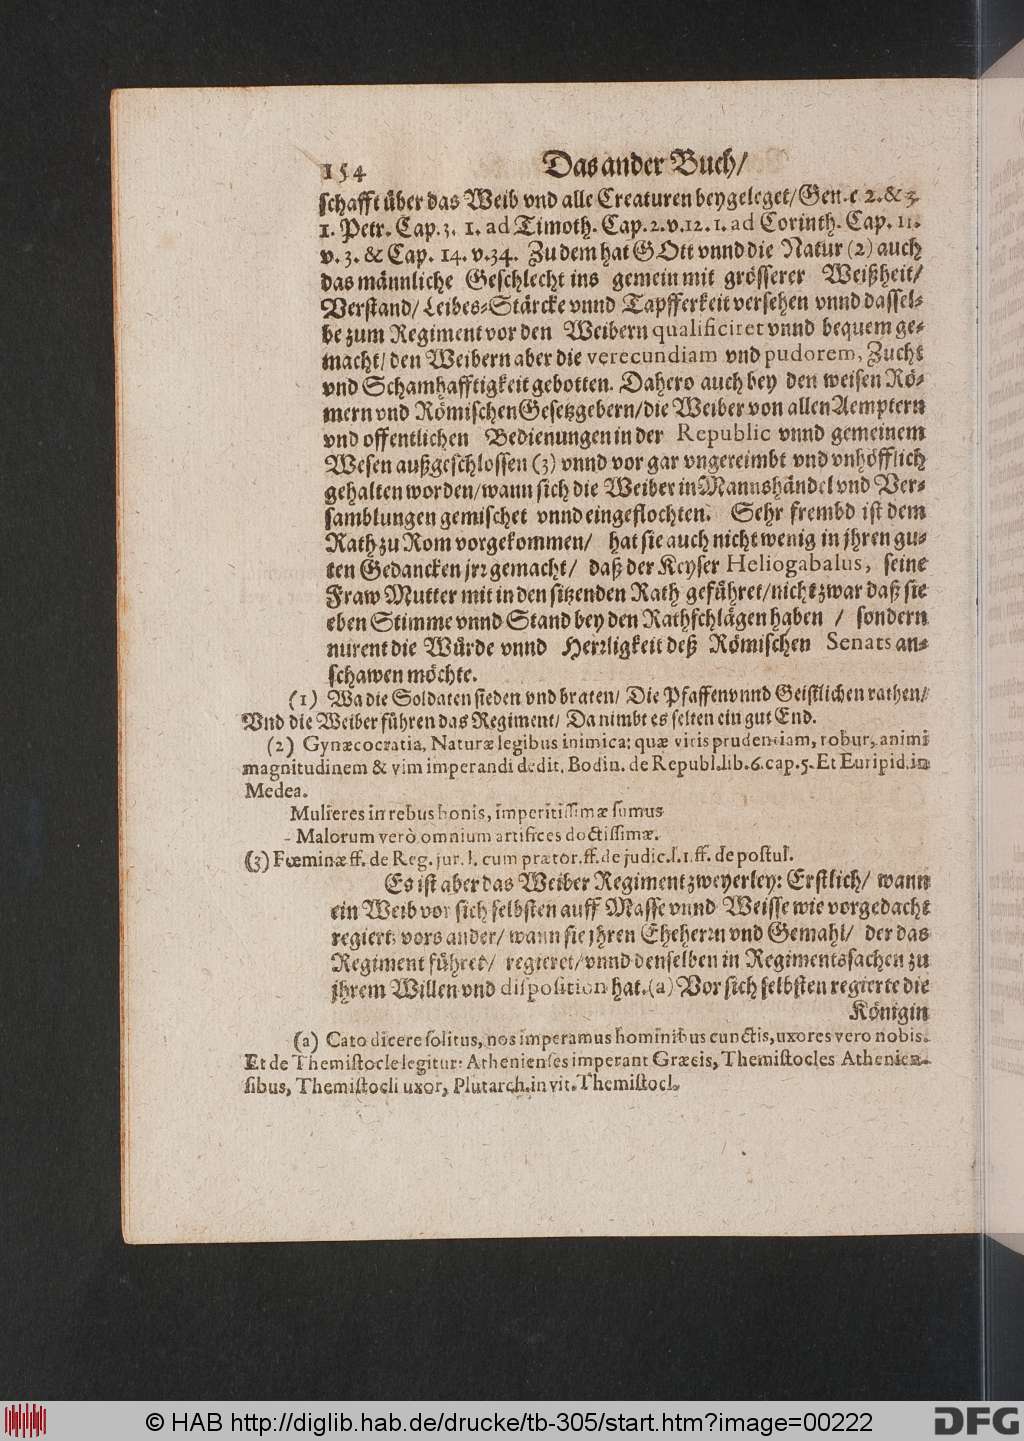 154 Das ander Buch/
schafft über das Weib vnd alle Creaturen beygeleget/ Gen. c 2. & 3.
1. Petr. Cap. 3. 1. ad Timoth. Cap. 2. v. 12. 1. ad Corinth. Cap. 11.
v. 3. & Cap. 14. v. 34. Zu dem hat GOtt vnnd die Natur (2) auch
das männliche Geschlecht ins gemein mit grösserer Weißheit/
Verstand/ Leibes-Stärcke vnnd Tapfferkeit versehen vnnd dassel-
be zum Regiment vor den Weibern qualificiret vnnd bequem ge-
macht/ den Weibern aber die verecundiam vnd pudorem, Zucht
vnd Schamhafftigkeit gebotten. Dahero auch bey den weisen Rö-
mern vnd Römischen Gesetzgebern/ die Weiber von allen Aemptern
vnd offentlichen Bedienungen in der Republic vnnd gemeinem
Wesen außgeschlossen (3) vnnd vor gar vngereimbt vnd vnhöfflich
gehalten worden/ wann sich die Weiber in Mannshändel vnd Ver-
samblungen gemischet vnnd eingeflochten. Sehr frembd ist dem
Rath zu Rom vorgekommen/ hat sie auch nicht wenig in jhren gu-
ten Gedancken jrr gemacht/ daß der Keyser Heliogabalus, seine
Fraw Mutter mit in den sitzenden Rath geführet/ nicht zwar daß sie
eben Stimme vnnd Stand bey den Rathschlägen haben / sondern
nur ent die Würde vnnd Herrligkeit deß Römischen Senats an-
schawen möchte.
(1) Wa die Soldaten sieden vnd braten/ Die Pfaffen vnnd Geistlichen rathen/
Vnd die Weiber führen das Regiment/ Da nimbt es selten ein gut End.
(2) Gynæcocratia, Naturæ legibus inimica: quæ viris prudentiam, robur, animi
magnitudinem & vim imperandi dedit. Bodin. de Republ. lib. 6. cap. 5. Et Euripid. in
Medea.
Mulieres in rebus bonis, imperitissimæ sumus
Malorum verò omnium artifices doctissimæ.
(3) Fœminæ ff. de Reg. jur. l. cum prætor. ff. de judic. l. 1. ff. de postul.
Es ist aber das Weiber Regiment zweyerley: Erstlich/ wann
ein Weib vor sich selbsten auff Masse vnnd Weisse wie vorgedacht
regiert: vors ander/ wann sie jhren Eheherrn vnd Gemahl/ der das
Regiment führet/ regieret/ vnnd denselben in Regimentssachen zu
jhrem Willen vnd disposition hat. (a) Vor sich selbsten regierte die
Königin
(a) Cato dicere solitus, nos imperamus hominibus cunctis, uxores vero nobis.
Et de Themistocle legitur: Athenienses imperant Græcis, Themistocles Athenien-
sibus, Themistocli uxor, Plutarch. in vit. Themistocl.
© HAB http://diglib.hab.de/drucke/tb-305/start.htm?image=00222 DFG